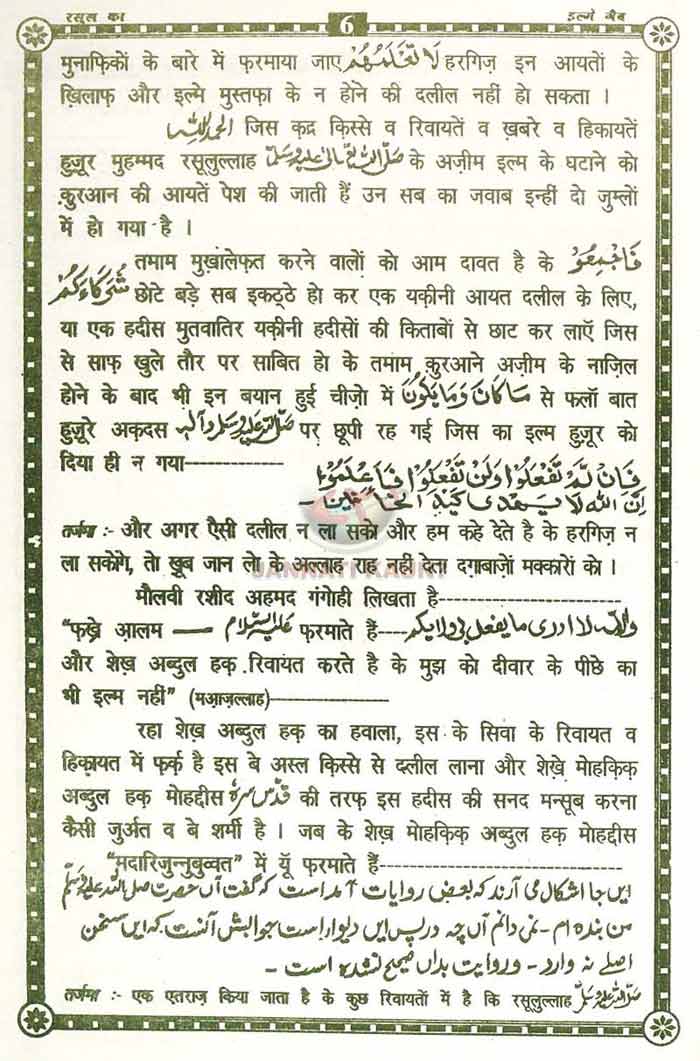 रसूल का 6 इल्मे ग़ैब
मुनाफिकों के बारे में फ़रमाया जाए لَا تَعْلَمُهُمْ हरगिज़ इन आयतों के
ख़िलाफ़ और इल्मे मुस्तफ़ा के न होने की दलील नहीं हो सकता ।
الحمد للہ जिस क़द्र क़िस्से व रिवायतें व ख़बरे व हिकायतें
हुज़ूर मुहम्मद रसूलुल्लाह صلی اللہ تعالیٰ علیہ وسلم के अज़ीम इल्म के घटाने को
क़ुरआन की आयतें पेश की जाती हैं उन सब का जवाब इन्हीं दो जुम्लों
में हो गया है ।
तमाम मुख़ालेफ़त करने वालों को आम दावत है के فَاجْمِعُوْ
شُرَكَاءَكُمْ छोटे बड़े सब इकठ्ठे हो कर एक यक़ीनी आयत दलील के लिए,
या एक हदीस मुतवातिर यक़ीनी हदीसों की किताबों से छाट कर लाऐं जिस
से साफ़ खुले तौर पर साबित हो के तमाम क़ुरआने अज़ीम के नाज़िल
होने के बाद भी इन बयान हुई चीज़ो में مَاكَانَ وَمَايَكُوْنَ से फलॉ बात
हुज़ूरे अकदस صلی اللہ علیہ وسلم وآلہ पर छूपी रह गई जिस का इल्म हुज़ूर को
दिया ही न गया----------
فَاِنْ لَّمْ تَفْعَلُوْا وَلَنْ تَفْعَلُوْا فَاعْلَمُوْا
اِنَّ اللّٰهَ لَا يَهْدِىْ كَيْدَ الْخَائِنِيْنَ -
तर्जमा :- और अगर ऐसी दलील न ला सको और हम कहे देते है के हरगिज़ न
ला सकोगे, तो ख़ूब जान लो के अल्लाह राह नहीं देता दग़ाबाज़ों मक्कारों को ।
JANNATI KAUN?
मौलवी रशीद अहमद गंगोही लिखता है----------
"फ़ख़्रे आलम — علیہ السلام फ़रमाते हैं---- واللہ لا ادری ما یفعل بی ولا بکم
और शेख़ अब्दुल हक़ रिवायत करते है के मुझ को दीवार के पीछे का
भी इल्म नहीं" (मआज़ल्लाह)----------
रहा शेख़ अब्दुल हक़ का हवाला, इस के सिवा के रिवायत व
हिक़ायत में फर्क है इस बे अस्ल क़िस्से से दलील लाना और शेख़े मोहक़िक़
अब्दुल हक़ मोहद्दीस قدّس سرہٗ की तरफ इस हदीस की सनद मन्सूब करना
कैसी जुर्अत व बे शर्मी है । जब के शेख़ मोहक़िक़ अब्दुल हक़ मोहद्दीस
"मदारिजुन्नुबुव्वत" में यूँ फरमाते हैं----------
ایں جا اشکال می آرند کہ بعض روایات آمد است کہ گفت آں حضرت صلی اللہ علیہ وسلم
من بندہ ام - نمی دانم آں چہ در پس ایں دیوار است جوابش آنست کہ ایں سخن
اصلے نہ دارد - وروایت بداں صحیح نشدہ است -
तर्जमा :- एक एतराज़ किया जाता है के कुछ रिवायतों में है कि रसूलुल्लाह صلی اللہ علیہ وسلم